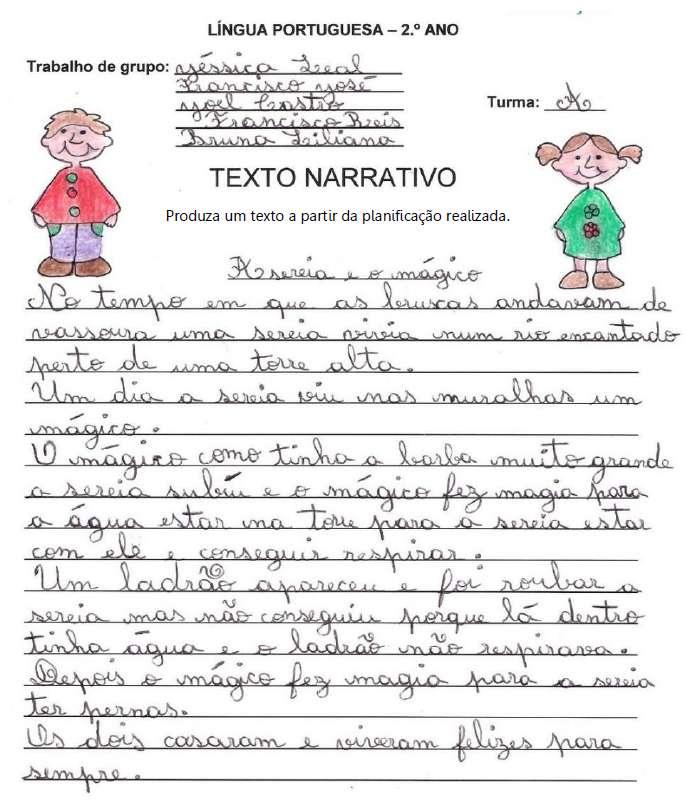 LÍNGUA PORTUGUESA – 2.º ANO
Trabalho de grupo: Yéssica Leal
Francisco José
Yoel Castro
Francisco Reis
Bruna Liliana
Turma: A
TEXTO NARRATIVO
Produza um texto a partir da planificação realizada.
A sereia e o mágico
No tempo em que as bruscas andavam de
vassoura uma sereia vivia num rio encantado
perto de uma torre alta.
Um dia a sereia viu nas muralhas um
mágico.
O mágico como tinha a barba muito grande
a sereia subiu e o mágico fez magia para
a água estar na torre para a sereia estar
com ele e conseguir respirar.
Um ladrão apareceu e foi roubar a
sereia mas não conseguiu porque lá dentro
tinha água e o ladrão não respirava.
Depois o mágico fez magia para a sereia
ter pernas.
Os dois casaram e viveram felizes para
sempre.